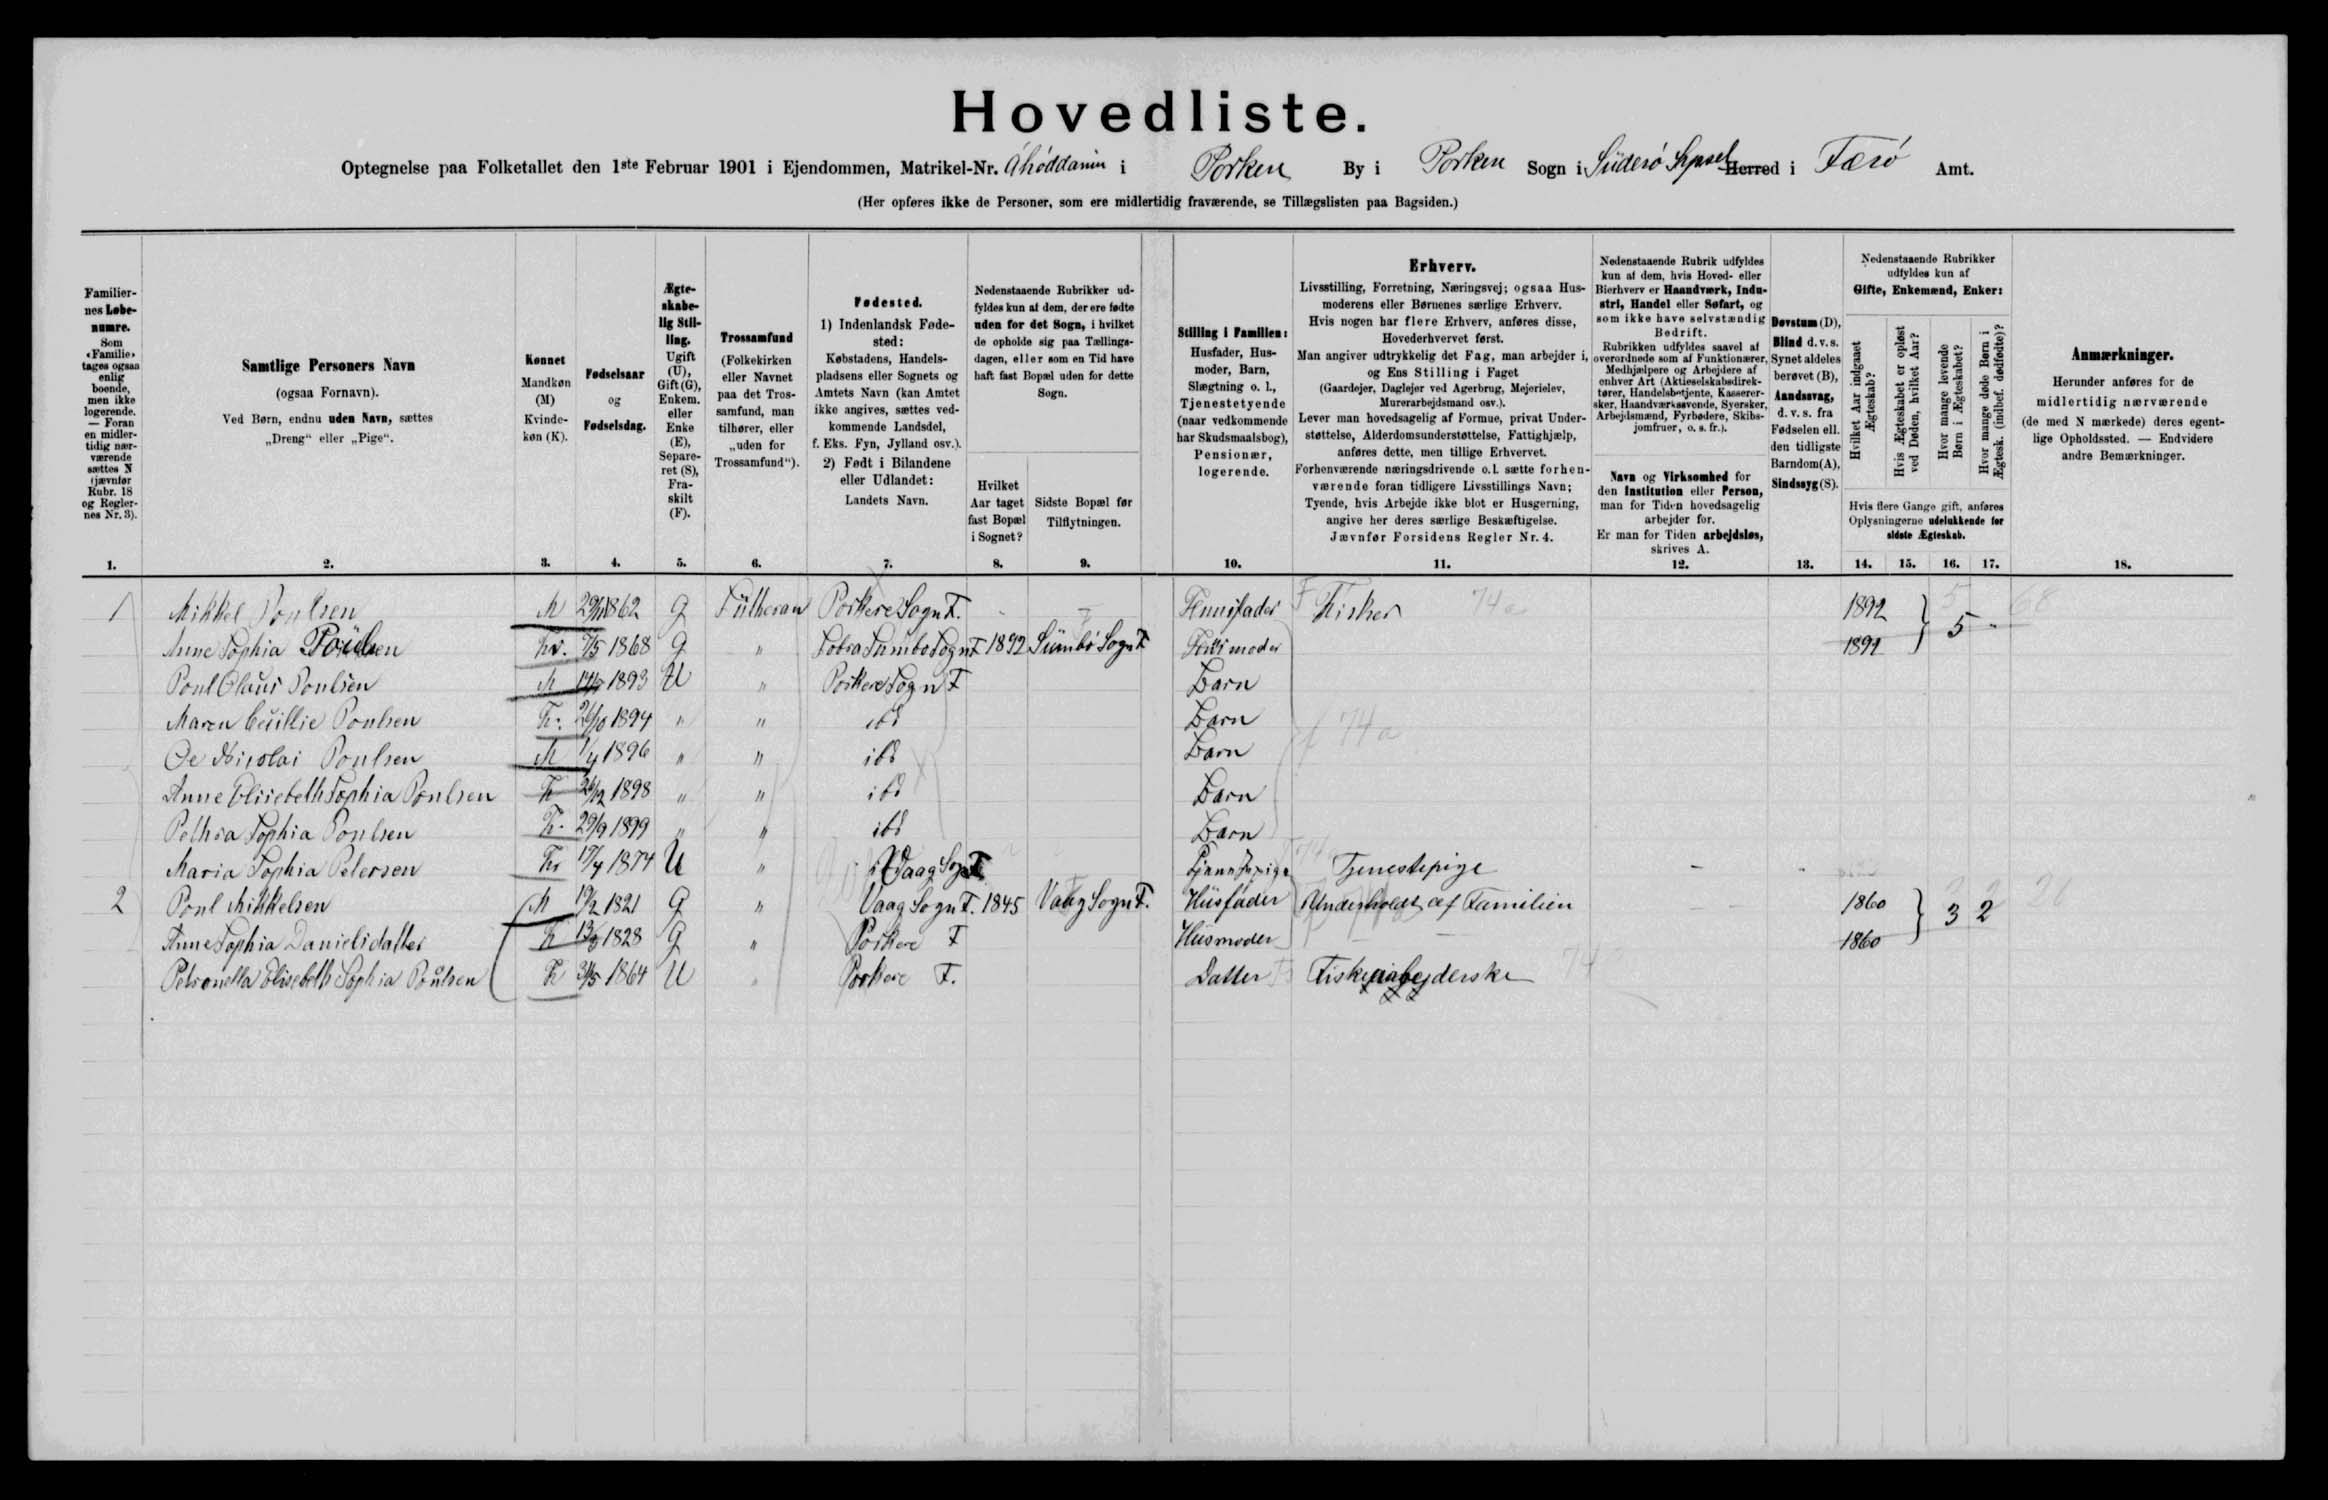 Hovedliste.
Optegnelse paa Folketallet den 1ste Februar 1901 i Ejendommen, Matrikel-Nr. Áhøddanum i Porken By i Porken Sogn i Süderø Syssel Herred i Færø Amt.
(Her opføres ikke de Personer, som ere midlertidig fraværende, se Tillægslisten paa Bagsiden.)
Familiernes Løbenumre. Som «Familie» tages ogsaa enlig boende, men ikke logerende. — Foran en midlertidig nærværende sættes N (jævnfør Rubr. 18 og Reglernes Nr. 3).
Samtlige Personers Navn
(ogsaa Fornavn).
Ved Børn, endnu uden Navn, sættes
„Dreng“ eller „Pige“.
Kønnet
Mandkøn (M)
Kvindekøn (K).
Fødselsaar
og
Fødselsdag.
Ægteskabelig Stilling.
Ugift (U), Gift (G), Enkem. eller Enke (E), Separeret (S), Fraskilt (F).
Trossamfund
(Folkekirken eller Navnet paa det Trossamfund, man tilhører, eller „uden for Trossamfund“).
Fødested.
1) Indenlandsk Fødested:
Købstadens, Handelspladsens eller Sognets og Amtets Navn (kan Amtet ikke angives, sættes vedkommende Landsdel, f. Eks. Fyn, Jylland osv.).
2) Født i Bilandene eller Udlandet:
Landets Navn.
Nedenstaaende Rubrikker udfyldes kun af dem, der ere fødte uden for det Sogn, i hvilket de opholde sig paa Tællingsdagen, eller som en Tid have haft fast Bopæl uden for dette Sogn.
Hvilket Aar taget fast Bopæl i Sognet?
Sidste Bopæl før Tilflytningen.
Stilling i Familien:
Husfader, Husmoder, Barn, Slægtning o. l., Tjenestetyende (naar vedkommende har Skudsmaalsbog), Pensionær, logerende.
Erhverv.
Livsstilling, Forretning, Næringsvej; ogsaa Husmoderens eller Børnenes særlige Erhverv.
Hvis nogen har flere Erhverv, anføres disse, Hovederhvervet først.
Man angiver udtrykkelig det Fag, man arbejder i, og Ens Stilling i Faget
(Gaardejer, Daglejer ved Agerbrug, Mejerielev, Murerarbejdsmand osv.).
Lever man hovedsagelig af Formue, privat Understøttelse, Alderdomsunderstøttelse, Fattighjælp, anføres dette, men tillige Erhvervet.
Forhenværende næringsdrivende o. l. sætte forhenværende foran tidligere Livsstillings Navn;
Tyende, hvis Arbejde ikke blot er Husgerning, angive her deres særlige Beskæftigelse.
Jævnfør Forsidens Regler Nr. 4.
Nedenstaaende Rubrik udfyldes kun af dem, hvis Hoved- eller Bierhverv er Haandværk, Industri, Handel eller Søfart, og som ikke have selvstændig Bedrift.
Rubrikken udfyldes saavel af overordnede som af Funktionærer, Medhjælpere og Arbejdere af enhver Art (Aktieselskabsdirektører, Handelsbetjente, Kasserersker, Haandværkssvende, Syersker, Arbejdsmænd, Fyrbødere, Skibsjomfruer, o. s. fr.).
Navn og Virksomhed for den Institution eller Person, man for Tiden hovedsagelig arbejder for.
Er man for Tiden arbejdsløs, skrives A.
Døvstum (D), Blind d. v. s. Synet aldeles berøvet (B), Aandssvag, d. v. s. fra Fødselen ell. den tidligste Barndom (A), Sindssyg (S).
Nedenstaaende Rubrikker udfyldes kun af Gifte, Enkemænd, Enker:
Hvilket Aar indgaaet Ægteskab?
Hvis Ægteskabet er opløst ved Døden, hvilket Aar?
Hvor mange levende Børn i Ægteskabet?
Hvor mange døde Børn i Ægtesk. (indbef. dødfødte)?
Hvis flere Gange gift, anføres Oplysningerne udelukkende for sidste Ægteskab.
Anmærkninger.
Herunder anføres for de midlertidig nærværende (de med N mærkede) deres egentlige Opholdssted. — Endvidere andre Bemærkninger.
1. 2. 3. 4. 5. 6. 7. 8. 9. 10. 11. 12. 13. 14. 15. 16. 17. 18.
1 Mikkel Poulsen M 1862 G Lutheran Porkere Sogn F. Fisker 74a 1892 5
Anne Sophia Poulsen Kv. 1868 G " Sumbo Sogn F 1892 Sümbø Sogn F 1892 5
Poul Claus Poulsen M 1893 U " Porkere Sogn F Barn
Maren Cecillie Poulsen K. 26/10 1894 " " ibd Barn 74a
Ole Nicolai Poulsen M 1896 " " ibd Barn
Anne Elisebeth Sophia Poulsen K 26/12 1898 " " ibd Barn
Pethra Sophia Poulsen K. 29/9 1899 " " ibd Barn
Maria Sophia Petersen Kv 17/4 1874 U " Vaag Sogn F Tjenestepige
2 Poul Mikkelsen M 19/2 1821 G " Vaag Sogn F. 1845 Vaag Sogn F. Husfader Underholdt af Familien 1860 3 2 26
Anne Sophia Danielsdatter K 1828 G " Porkere F Husmoder 1860
Petronella Elisebeth Sophia Poulsen K 31/5 1864 U " Porkere F. Datter Fiskeriarbejderske 74